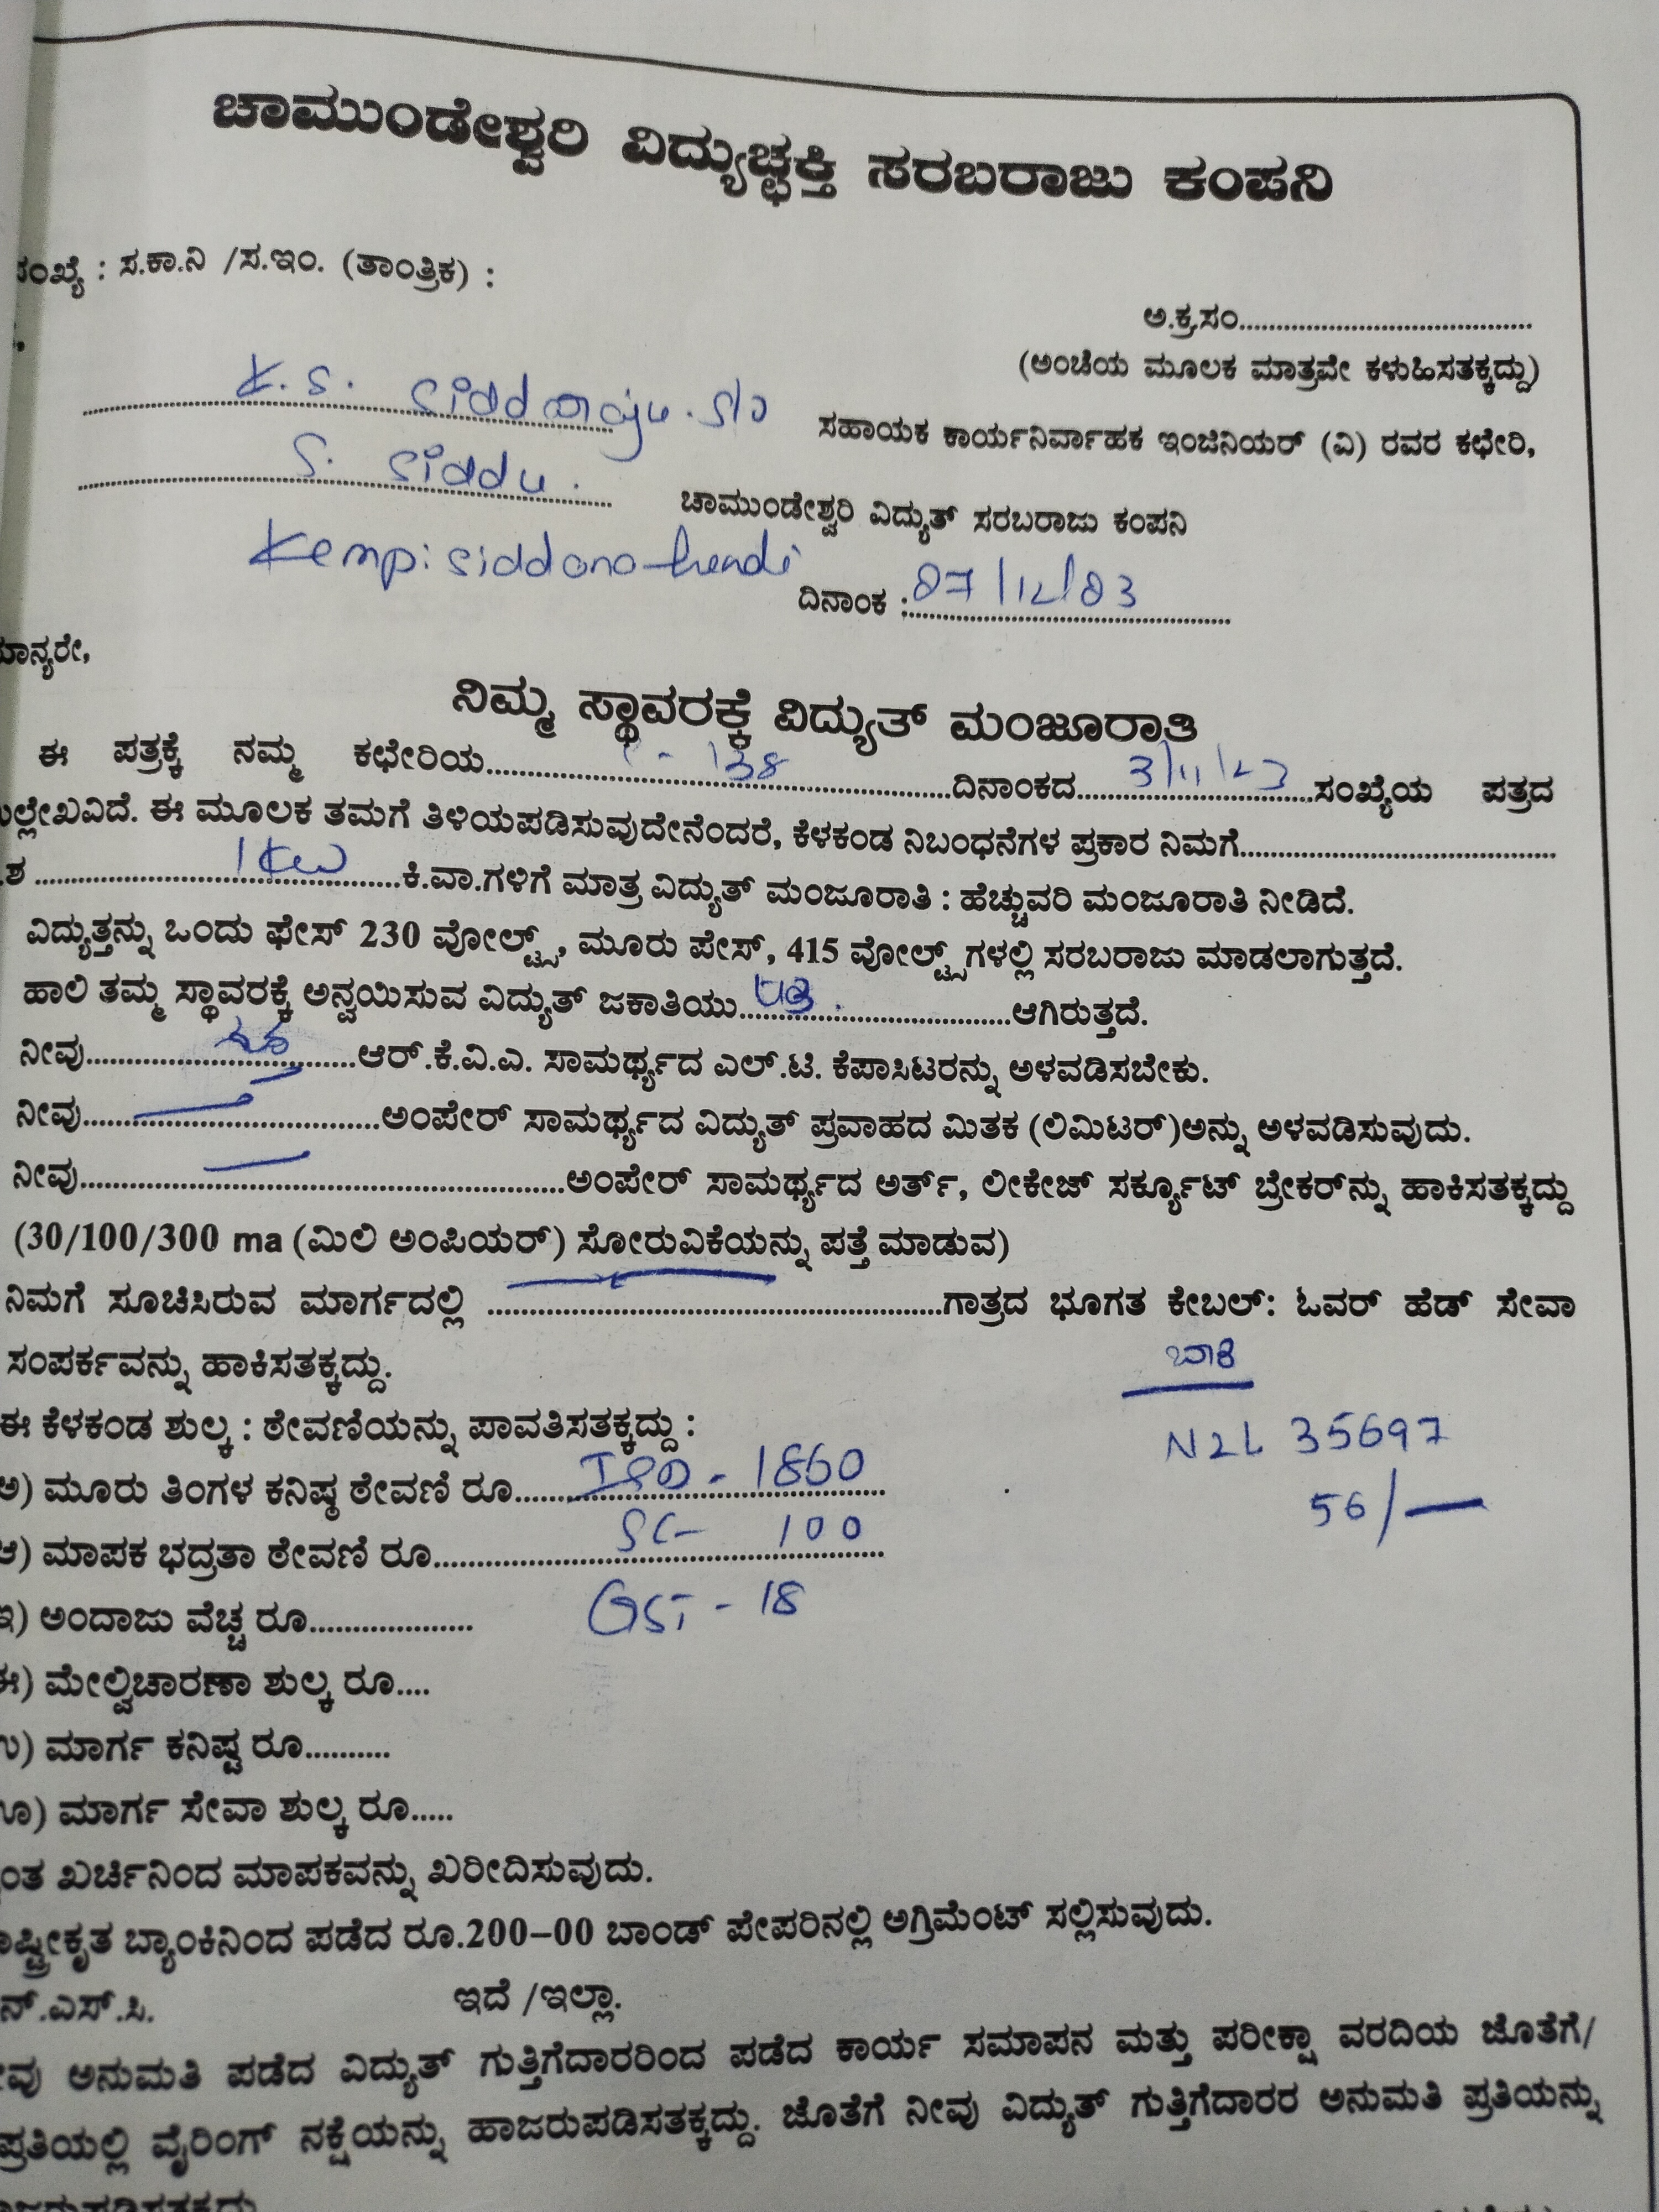 ಚಾಮುಂಡೇಶ್ವರಿ ವಿದ್ಯುಚ್ಛಕ್ತಿ ಸರಬರಾಜು ಕಂಪನಿ
: ಸ.ಕಾ.ನಿ /ಸ.ಇಂ. (ತಾಂತ್ರಿಕ) :
ಅ.ಕ್ರ.ಸಂ....................................
(ಅಂಚೆಯ ಮೂಲಕ ಮಾತ್ರವೇ ಕಳುಹಿಸತಕ್ಕದ್ದು)
K. S. Siddaraju. S/o
ಸಹಾಯಕ ಕಾರ್ಯನಿರ್ವಾಹಕ ಇಂಜಿನಿಯರ್ (ವಿ) ರವರ ಕಛೇರಿ,
S. Siddu.
ಚಾಮುಂಡೇಶ್ವರಿ ವಿದ್ಯುತ್ ಸರಬರಾಜು ಕಂಪನಿ
ದಿನಾಂಕ : 07/12/03
ನಿಮ್ಮ ಸ್ಥಾವರಕ್ಕೆ ವಿದ್ಯುತ್ ಮಂಜೂರಾತಿ
ಈ ಪತ್ರಕ್ಕೆ ನಮ್ಮ ಕಛೇರಿಯ........138........ದಿನಾಂಕದ....3/11/23....ಸಂಖ್ಯೆಯ ಪತ್ರದ
ಈ ಮೂಲಕ ತಮಗೆ ತಿಳಿಯಪಡಿಸುವುದೇನೆಂದರೆ, ಕೆಳಕಂಡ ನಿಬಂಧನೆಗಳ ಪ್ರಕಾರ ನಿಮಗೆ....................
........1 KW........ಕಿ.ವಾ.ಗಳಿಗೆ ಮಾತ್ರ ವಿದ್ಯುತ್ ಮಂಜೂರಾತಿ : ಹೆಚ್ಚುವರಿ ಮಂಜೂರಾತಿ ನೀಡಿದೆ.
ವಿದ್ಯುತ್ತನ್ನು ಒಂದು ಫೇಸ್ 230 ವೋಲ್ಟ್ಸ್, ಮೂರು ಪೇಸ್, 415 ವೋಲ್ಟ್ಸ್‌ಗಳಲ್ಲಿ ಸರಬರಾಜು ಮಾಡಲಾಗುತ್ತದೆ.
ಹಾಲಿ ತಮ್ಮ ಸ್ಥಾವರಕ್ಕೆ ಅನ್ವಯಿಸುವ ವಿದ್ಯುತ್ ಜಕಾತಿಯು....................ಆಗಿರುತ್ತದೆ.
ನೀವು....................ಆರ್.ಕೆ.ವಿ.ಎ. ಸಾಮರ್ಥ್ಯದ ಎಲ್.ಟಿ. ಕೆಪಾಸಿಟರನ್ನು ಅಳವಡಿಸಬೇಕು.
ನೀವು....................ಅಂಪೇರ್ ಸಾಮರ್ಥ್ಯದ ವಿದ್ಯುತ್ ಪ್ರವಾಹದ ಮಿತಕ (ಲಿಮಿಟರ್)ಅನ್ನು ಅಳವಡಿಸುವುದು.
ನೀವು....................ಅಂಪೇರ್ ಸಾಮರ್ಥ್ಯದ ಅರ್ತ್, ಲೀಕೇಜ್ ಸರ್ಕ್ಯೂಟ್ ಬ್ರೇಕರ್‌ನ್ನು ಹಾಕಿಸತಕ್ಕದ್ದು
(30/100/300 ma (ಮಿಲಿ ಅಂಪಿಯರ್) ಸೋರುವಿಕೆಯನ್ನು ಪತ್ತೆ ಮಾಡುವ)
ನಿಮಗೆ ಸೂಚಿಸಿರುವ ಮಾರ್ಗದಲ್ಲಿ ....................ಗಾತ್ರದ ಭೂಗತ ಕೇಬಲ್: ಓವರ್ ಹೆಡ್ ಸೇವಾ
ಸಂಪರ್ಕವನ್ನು ಹಾಕಿಸತಕ್ಕದ್ದು.
ಬಾಕಿ
ಈ ಕೆಳಕಂಡ ಶುಲ್ಕ : ಠೇವಣಿಯನ್ನು ಪಾವತಿಸತಕ್ಕದ್ದು :
N2L 35697
ಅ) ಮೂರು ತಿಂಗಳ ಕನಿಷ್ಠ ಠೇವಣಿ ರೂ........ISD - 1860
56/—
ಆ) ಮಾಪಕ ಭದ್ರತಾ ಠೇವಣಿ ರೂ........SC- 100
ಇ) ಅಂದಾಜು ವೆಚ್ಚ ರೂ................... GST - 18
ಈ) ಮೇಲ್ವಿಚಾರಣಾ ಶುಲ್ಕ ರೂ....
ಉ) ಮಾರ್ಗ ಕನಿಷ್ಟ ರೂ..........
ಊ) ಮಾರ್ಗ ಸೇವಾ ಶುಲ್ಕ ರೂ.....
ಖರ್ಚಿನಿಂದ ಮಾಪಕವನ್ನು ಖರೀದಿಸುವುದು.
ಬ್ಯಾಂಕಿನಿಂದ ಪಡೆದ ರೂ.200-00 ಬಾಂಡ್ ಪೇಪರಿನಲ್ಲಿ ಅಗ್ರಿಮೆಂಟ್ ಸಲ್ಲಿಸುವುದು.
ನ್.ಎಸ್.ಸಿ. ಇದೆ /ಇಲ್ಲಾ.
ಅನುಮತಿ ಪಡೆದ ವಿದ್ಯುತ್ ಗುತ್ತಿಗೆದಾರರಿಂದ ಪಡೆದ ಕಾರ್ಯ ಸಮಾಪನ ಮತ್ತು ಪರೀಕ್ಷಾ ವರದಿಯ ಜೊತೆಗೆ/
ಪ್ರತಿಯಲ್ಲಿ ವೈರಿಂಗ್ ನಕ್ಷೆಯನ್ನು ಹಾಜರುಪಡಿಸತಕ್ಕದ್ದು. ಜೊತೆಗೆ ನೀವು ವಿದ್ಯುತ್ ಗುತ್ತಿಗೆದಾರರ ಅನುಮತಿ ಪ್ರತಿಯನ್ನು